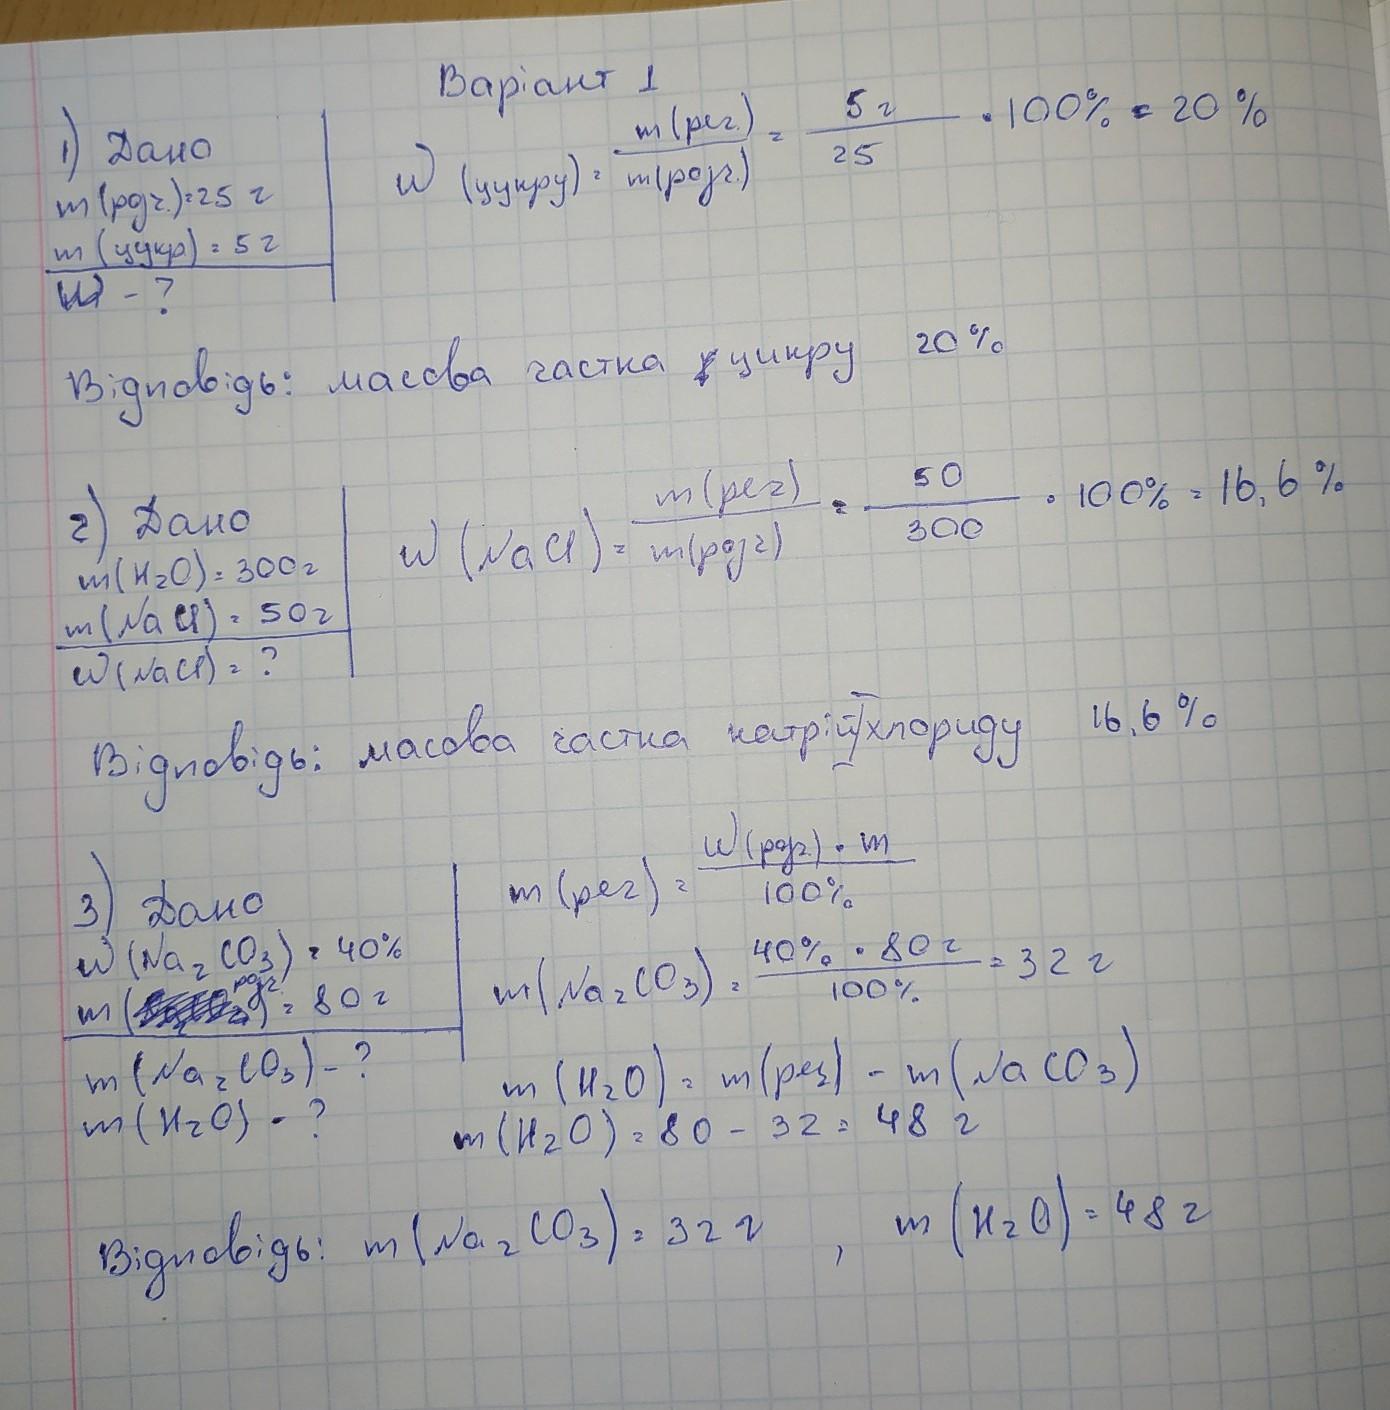 Варіант 1
1) Дано
m(розч.)=25 г
m(цукр)=5г
W - ?
W (цукру) = m(реч.) / m(розч.) = 5г / 25 · 100% = 20%
Відповідь: масова частка цикру 20%
2) Дано
m(H₂O)=300г
m(NaCl)=50г
W(NaCl)=?
W(NaCl)= m(реч) / m(розч) = 50 / 300 · 100% = 16,6%
Відповідь: масова частка натрій хлориду 16,6%
3) Дано
W(Na₂CO₃)=40%
m(розч)=80г
m(Na₂CO₃)-?
m(H₂O)-?
m(реч)= W(розч)·m / 100%
m(Na₂CO₃)= 40%·80г / 100% =32г
m(H₂O)=m(реч)-m(NaCO₃)
m(H₂O)=80-32=48г
Відповідь: m(Na₂CO₃)=32г , m(H₂O)=48г